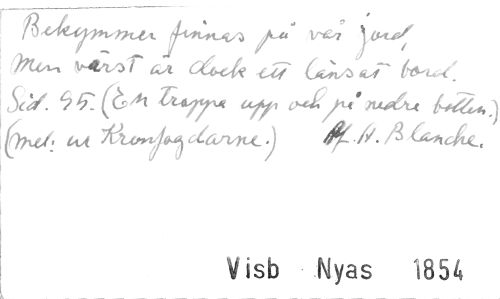 Bekymmer finnas på vår jord,
men värst är dock ett länsat bord.
Sid. 95. (En trappa upp och på nedre botten.)
(mel: ur Kronfogdarne.) Af. A. Blanche.
Visb Nyas 1854